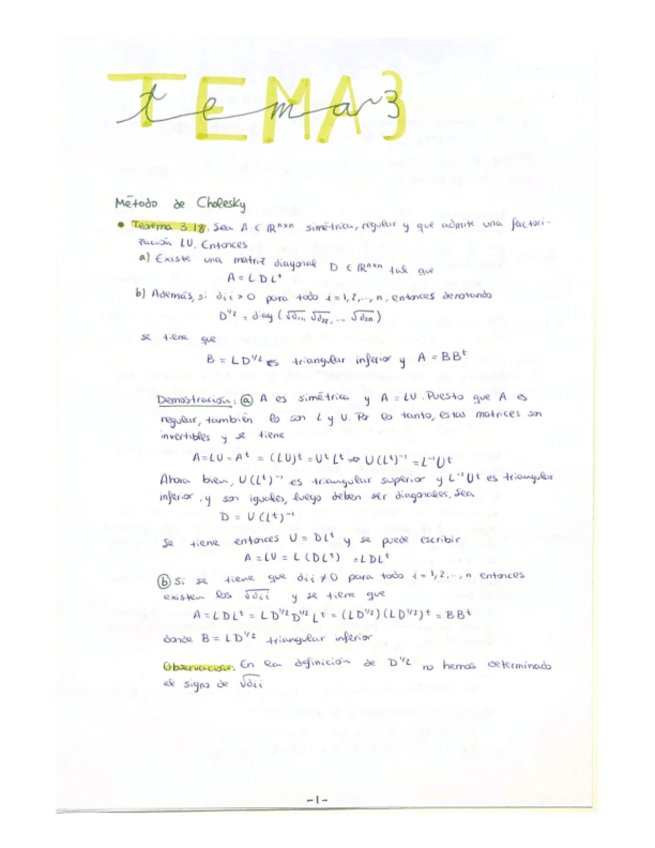 TEMA 3
tema 3
Método de Cholesky
• Teorema 3.18. Sea A ∈ ℝⁿˣⁿ simétrica, regular y que admite una factori-
zación LU. Entonces
a) Existe una matriz diagonal D ∈ ℝⁿˣⁿ tal que
A = L D Lᵗ
b) Además, si dᵢᵢ > 0 para todo i = 1, 2, .., n, entonces denotando
D^1/2 = diag (√d₁₁, √d₂₂, ... √dₙₙ)
se tiene que
B = L D^1/2 es triangular inferior y A = BBᵗ
Demostración: ⓐ A es simétrica y A = LU. Puesto que A es
regular, también lo son L y U. Por lo tanto, estas matrices son
invertibles y se tiene
A = LU = Aᵗ = (LU)ᵗ = UᵗLᵗ ⇒ U(Lᵗ)⁻¹ = L⁻¹Uᵗ
Ahora bien, U(Lᵗ)⁻¹ es triangular superior y L⁻¹Uᵗ es triangular
inferior, y son iguales, luego deben ser diagonales. Sea
D = U(Lᵗ)⁻¹
Se tiene entonces U = DLᵗ y se puede escribir
A = LU = L(DLᵗ) = LDLᵗ
ⓑ Si se tiene que dᵢᵢ ≠ 0 para todo i = 1, 2, .., n entonces
existen los √dᵢᵢ y se tiene que
A = LDLᵗ = LD^1/2 D^1/2 Lᵗ = (LD^1/2)(LD^1/2)ᵗ = BBᵗ
donde B = LD^1/2 triangular inferior
Observación: En la definición de D^1/2 no hemos determinado
el signo de √dᵢᵢ
-1-